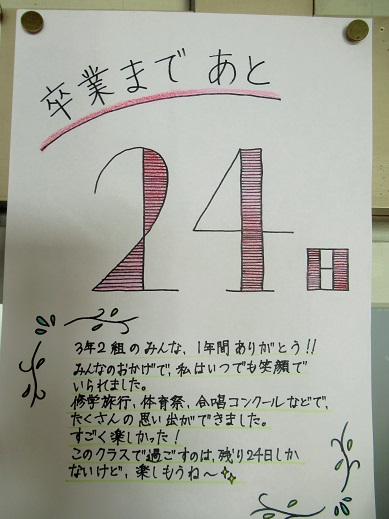 卒業まで あと
24日
3年2組のみんな、1年間ありがとう!!
みんなのおかげで、私はいつでも笑顔で
いられました。
修学旅行、体育祭、合唱コンクールなどで、
たくさんの思い出ができました。
すごく楽しかった!
このクラスで過ごすのは、残り24日しか
ないけど、楽しもうね〜✨